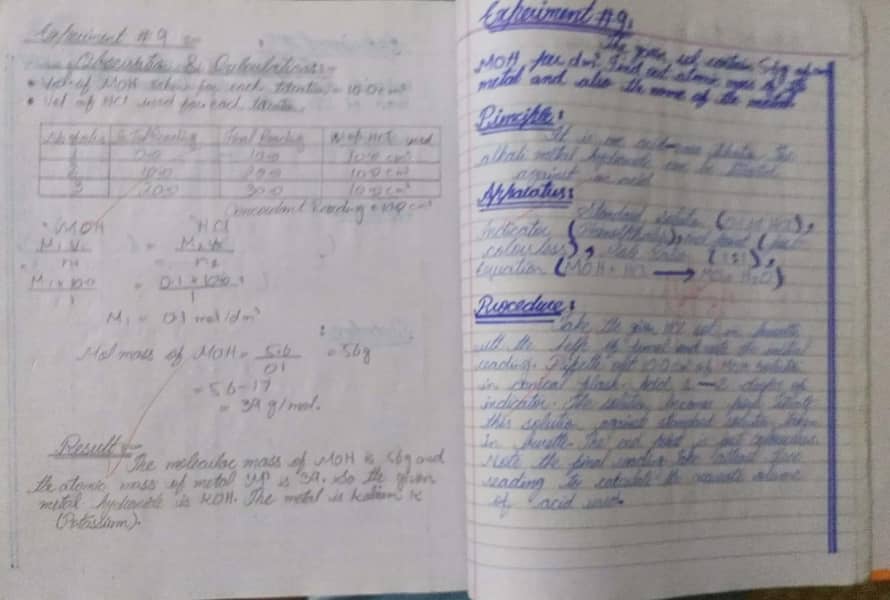 Experiment # 9
Observations & Calculations:-
• Vol. of MOH taken for each titration = 10.0 cm³
• Vol of HCl used for each titration
No of obs Initial Reading Final Reading Vol of HCl used
1 0.0 10.0 10.0 cm³
2 10.0 20.0 10.0 cm³
3 20.0 30.0 10.0 cm³
Concordant Reading = 10.0 cm³
MOH HCl
M₁V₁ = M₂V₂
n₁ n₂
M₁ x 10.0 = 0.1 x 10.0
1 1
M₁ = 0.1 mol/dm³
Mol mass of MOH = 5.6 = 56g
0.1
= 56-17
= 39 g/mol.
Result:-
The molecular mass of MOH is 56g and
the atomic mass of metal is 39. So the given
metal hydroxide is KOH. The metal is kalium K
(Potassium).
Experiment # 9:
The given sol. contains 5.6g of
MOH per dm³. Find out atomic mass of the
metal and also the name of the metal.
Principle:
It is an acid-base titration. The
alkali metal hydroxide can be titrated
against an acid.
Apparatus:
Standard solution (0.1 M HCl),
Indicator (Phenolphthalein), end point (
colourless), Mole Ratio (1:1),
Equation (MOH + HCl → MCl + H₂O)
Procedure:
Take the given HCl sol. in burette
with the help of funnel and note the initial
reading. Pipette out 10.0 cm³ of MOH solution
in conical flask. Add 1-2 drops of
indicator. The solution becomes pink. Titrate
this solution against standard solution taken
in burette. The end point is just colourless.
Note the final reading. Take atleast three
reading to calculate the accurate volume
of acid used.